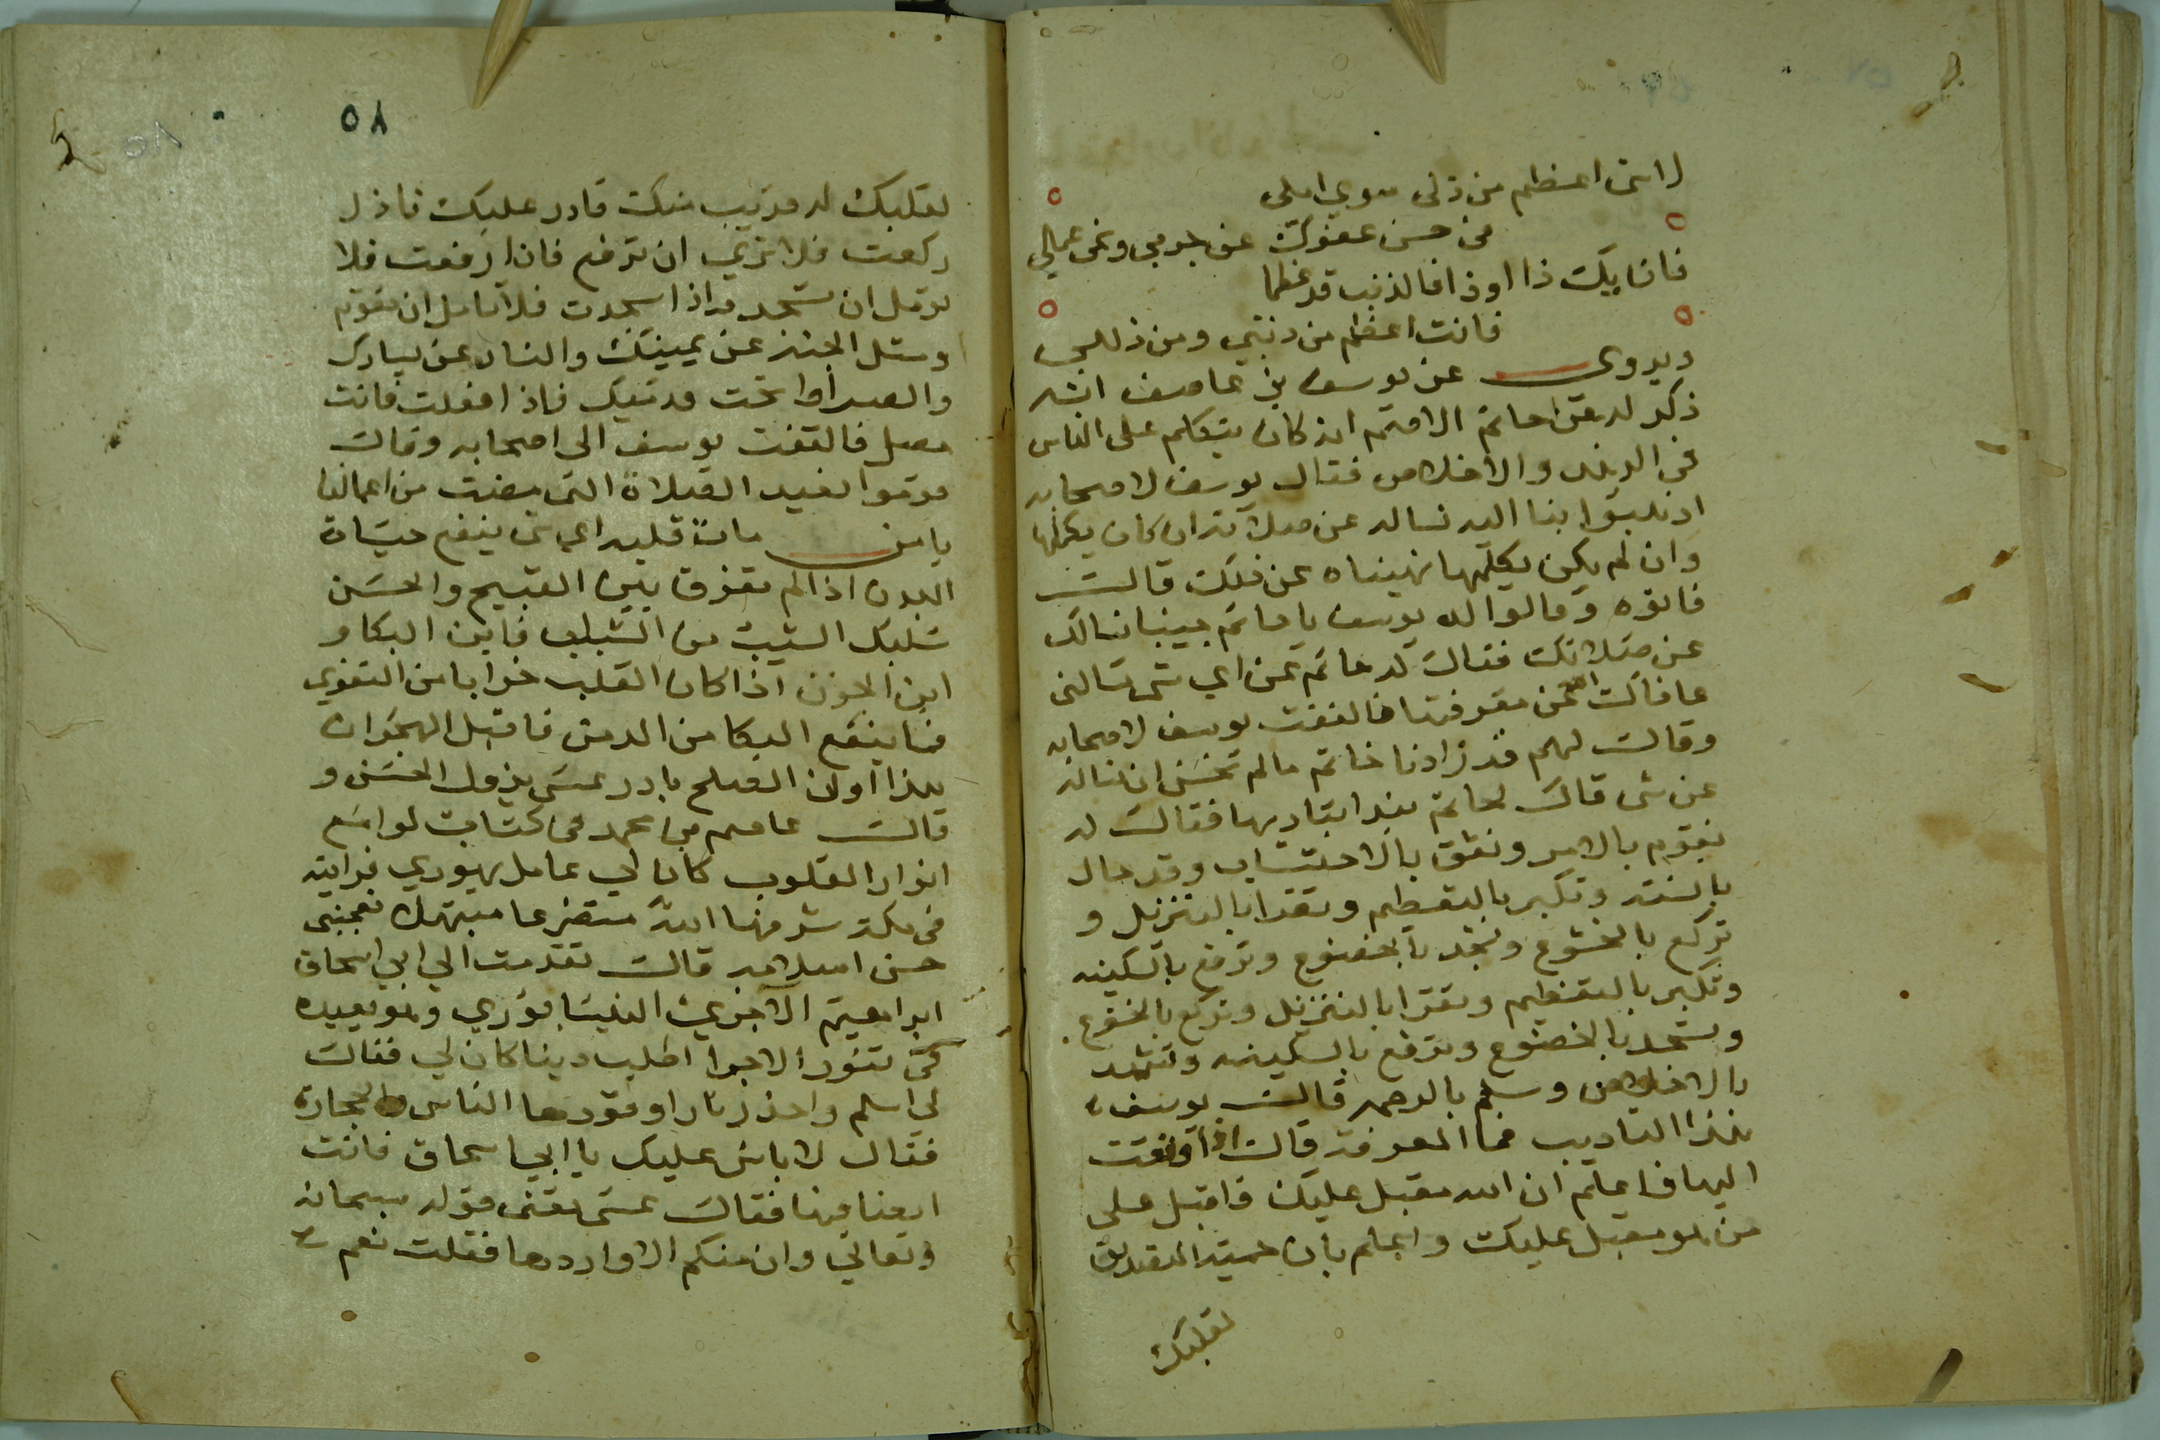 لا شى اعظم من ذلى سوي املى
من حسن عفوك عن جرمي وعن عملي
فان يك ذا اوذا فالذنب قد عظما
فانت اعظم من ذنبي ومن ذللي
ويروى عن يوسف بن عاصف انه
ذكر له عن حاتم الاصم انه كان يتكلم على الناس
في الزهد والاخلاص فقال يوسف لاصحابه
اذهبوا بنا اليه نساله عن صلاته ان كان يكملها
وان لم يكن يكملها نهيناه عن ذلك قال
فاتوه وقالوا له يوسف يا حاتم جينا نسالك
عن صلاتك فقال له حاتم عن اي شى تسالنى
عافاك الله عن معرفتها فالتفت يوسف لاصحابه
وقال لهم قد زادنا حاتم مالم نحسن ان نساله
عن شى قال لحاتم نبدا بتاديبها فقال له
تقوم بالامر وتقف بالاحتساب وتدخل
بالسنه وتكبر بالتعظيم وتقرا بالتنزيل و
تركع بالخشوع وتسجد بالخضوع وترفع بالسكينه
وتكبر بالتعظيم وتقرا بالتنزيل وتركع بالخشوع
وتسجد بالخضوع وترفع بالسكينه وتتشهد
بالاخلاص وسلم بالرحمه قال يوسف
هذا التاديب فما المعرفة قال اذا وقفت
اليها فاعلم ان الله مقبل عليك فاقبل على
من هو مقبل عليك واعلم بان جهة التصديق
لقلبك
٥٨
لقلبك انه قريب منك قادر عليك فاذا
ركعت فلا تري ان ترفع فاذا رفعت فلا
تومل ان تسجد واذا سجدت فلا تامل ان تقوم
ومثل الجنه عن يمينك والنار عن يسارك
والصراط تحت قدميك فاذا فعلت فانت
مصل فالتفت يوسف الى اصحابه وقال
قوموا نعيد الصلاة التى مضت من اعمالنا
يا من مات قلبه اي شى ينفع حياة
البدن اذا لم تفرق بين القبيح والحسن
سلبك الشيب من الشباب فاين البكا و
اين الحزن اذا كان القلب خرابا من التقوي
فما ينفع البكا من الدمن فاقبل الهجران
هذا اوان الصلح بادر عسى يزول الحسن و
قال عاصم بن محمد فى كتاب لوامع
انوار القلوب كان لي عامل يهودي فرايته
فى مكة شرفها الله متضرعا مبتهلا فعجبنى
حسن اسلامه قال تقدمت الي ابي اسحاق
ابراهيم الآجري النيسابوري وهو بيده
فى تنور الاجر اطلب دينا كان لي فقال
لي اسلم واحذر نارا وقودها الناس والحجارة
فقال لا باس عليك يا ابي اسحاق فانت
ايضا فيها فقال عسى تعنى قوله سبحانه
وتعالي وان منكم الا واردها فقلت نعم